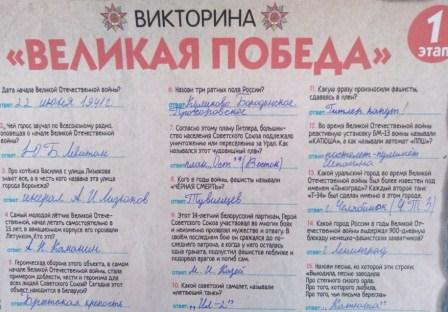 ВИКТОРИНА
«ВЕЛИКАЯ ПОБЕДА»
1
этап
Дата начала Великой Отечественной войны?
ответ 22 июня 1941г.
2. Чей голос звучал по Всесоюзному радио,
оповещая о начале Великой Отечественной
войны?
Ю.Б. Левитан
3. Про котёнка Василия с улицы Лизюкова
знают все, а в честь кого названа эта улица
города Воронежа?
генерал А.И. Лизюков
4. Самый молодой лётчик Великой Отече-
ственной, начал летать самостоятельно в
15 лет, в авиационном корпусе его прозвали
Летунком. Кто это?
А.К. Каманин
5. Героическая оборона этого объекта, в самом
начале Великой Отечественной войны, стала
примером доблести, чести и героизма для
всех людей Советского Союза! Сегодня этот
объект находится в Беларуси?
Брестская крепость
6. Назови три ратных поля России?
ответ Куликово, Бородинское,
Прохоровское
7. Согласно этому плану Гитлера, большин-
ство населения Советского Союза подлежало
уничтожению или определены за Урал. Как
назывался этот чудовищный план?
ответ план „Ост" (Восток)
8. Кого в годы войны, фашисты называли
«ЧЁРНАЯ СМЕРТЬ»?
ответ
9. Этот 14-летний белорусский партизан, Герой
Советского Союза участвовал во многих боях
и неизменно проявлял мужество и отвагу. В
своём последнем бою он сражался до по-
следнего патрона, а когда у него осталась
одна граната, подпустил фашистов поближе и
подорвал врагов и погиб сам.
ответ М.И. Казей
10. Какой советский самолет, называли
«летающий танк»?
ответ „Ил-2"
11. Какую фразу произносили фашисты,
сдаваясь в плен?
ответ Гитлер капут!
12. Во время Великой Отечественной войны
реактивную установку БМ-13 воины называли
«КАТЮША», а как называли автомат «ППШ»?
ответ пистолет-пулемёт
Шпагина
13. Какой уральский город во время Великой
Отечественной войны был более известен под
именем «Танкоград»? Каждый второй танк
«Т-34» был сделан именно в этом городе.
г. Челябинск (ЧТЗ)
14. Какой город России в годы Великой От-
ечественной Войны выдержал 900-дневную
блокаду немецко-фашистских захватчиков?
г. Ленинград
15. Назови песню, из которой эти строки:
«Выходила, песню заводила
Про степного сизого орла,
Про того, которого любила,
Про того, чьи письма берегла»
ответ „Катюша"